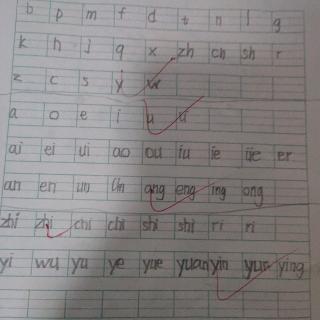 b p m f d t n l g
k h j q x zh ch sh r
z c s y w
a o e i u ü
ai ei ui ao ou iu ie üe er
an en un ün ang eng ing ong
zhi zhi chi chi shi shi ri ri
yi wu yu ye yue yuan yin yun ying